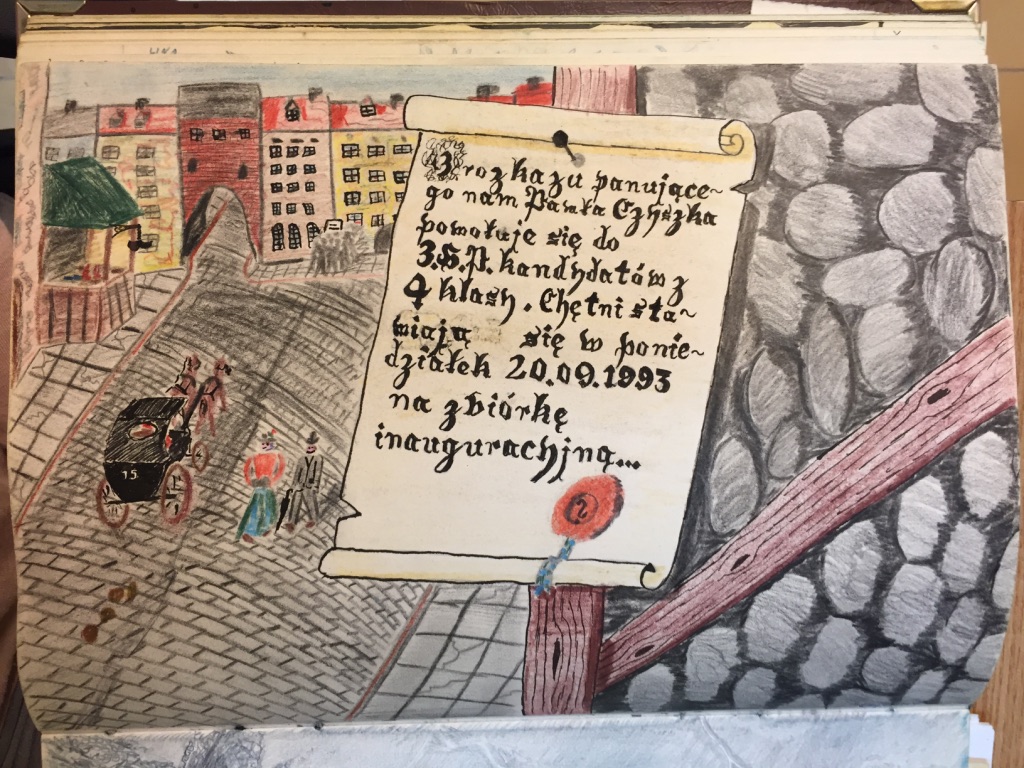 Z rozkazu panujące~
go nam Pawła Czyszka
powołuje się do
3.Ś.P. kandydatów z
4 klasy. Chętni sta~
wiają się w ponie~
działek 20.09.1993
na zbiórkę
inaugurachjną...
15